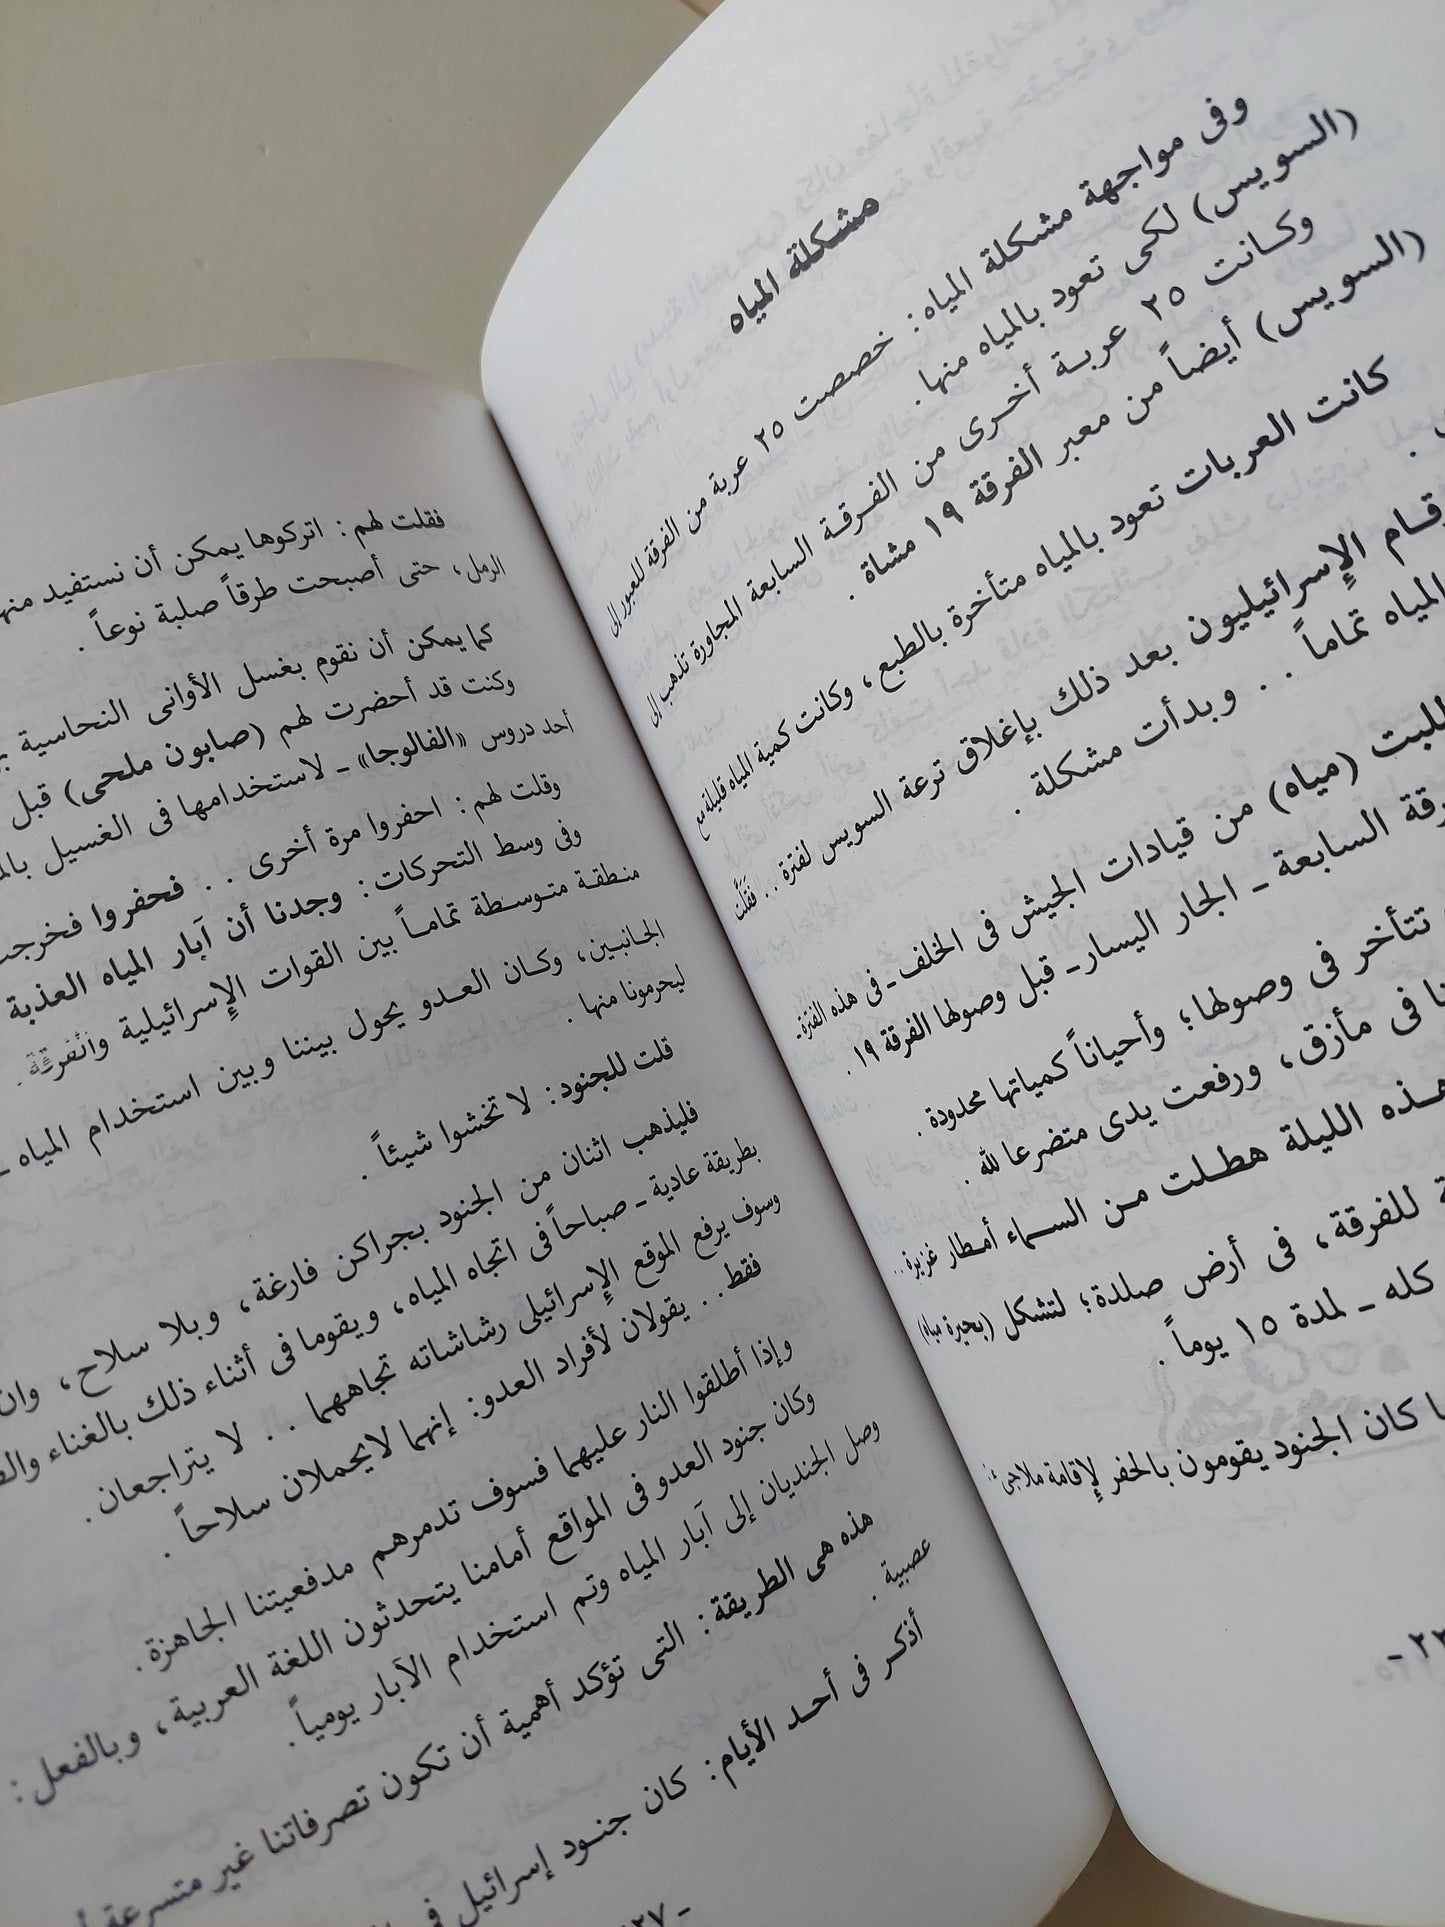 مشكلة المياه
وفى مواجهة مشكلة المياه: خصصت ٢٥ عربة من الفرقة للعبور إلى
(السويس) لكى تعود بالمياه منها.
وكانت ٢٥ عربة أخرى من الفرقة السابعة المجاورة تذهب إلى
(السويس) أيضاً من معبر الفرقة ١٩ مشاة.
كانت العربات تعود بالمياه متأخرة بالطبع، وكانت كمية المياه قليلة مع
قام الإسرائيليون بعد ذلك بإغلاق ترعة السويس لفترة.. فقلَّت
المياه تماماً.. وبدأت مشكلة.
(مياه) من قيادات الجيش فى الخلف ـ فى هذه الفترة ـ
السابعة ـ الجار اليسار ـ قبل وصولها الفرقة ١٩.
تتأخر فى وصولها؛ وأحياناً كمياتها محدودة.
فى مأزق، ورفعت يدى متضرعا لله.
هذه الليلة هطلت من السماء أمطار غزيرة..
للفرقة، فى أرض صلدة؛ لتشكل (بحيرة مياه)
كله ـ لمدة ١٥ يوماً.
كان الجنود يقومون بالحفر لإقامة ملاجئ:
فقلت لهم: اتركوها يمكن أن نستفيد منها
الرمل، حتى أصبحت طرقاً صلبة نوعاً.
كما يمكن أن نقوم بغسل الأوانى النحاسية
وكنت قد أحضرت لهم (صابون ملحى) قبل
أحد دروس «الفالوجا» ـ لاستخدامها فى الغسيل
وقلت لهم: احفروا مرة أخرى.. فحفروا
وفى وسط التحركات: وجدنا أن آبار المياه العذبة
منطقة متوسطة تماماً بين القوات الإسرائيلية والفرقة.
الجانبين، وكان العدو يحول بيننا وبين استخدام المياه ـ
ليحرمونا منها.
قلت للجنود: لا تخشوا شيئاً.
فليذهب اثنان من الجنود بجراكن فارغة، وبلا سلاح،
بطريقة عادية ـ صباحاً فى اتجاه المياه، ويقوما فى أثناء ذلك بالغناء
وسوف يرفع الموقع الإسرائيلى رشاشاته تجاههما.. لا يتراجعان.
فقط.. يقولان لأفراد العدو: إنهما لا يحملان سلاحاً.
وإذا أطلقوا النار عليهما فسوف تدمرهم مدفعيتنا الجاهزة.
وكان جنود العدو فى المواقع أمامنا يتحدثون اللغة العربية، وبالفعل:
وصل الجنديان إلى آبار المياه وتم استخدام الآبار يومياً.
هذه هى الطريقة: التى تؤكد أهمية أن تكون تصرفاتنا غير متسرعة
عصبية.
أذكر فى أحد الأيام: كان جنود إسرائيل فى